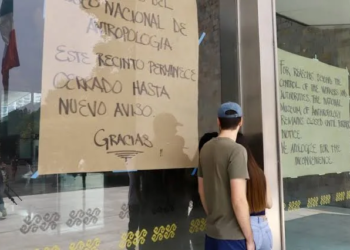 EO NACIONAL DE
ANTROPOLOGIA
ESTE RECINTO PERMANECE
CERRADO HASTA
NUEVO AVISO.
GRACIAS
FOR REASONS
CONTROL OF THE
AUTHORITIES, THE NATIONAL
MUSEUM OF ANTHROPOLOGY
REMAINS CLOSED UNTIL
NOTICE.
WE APOLOGIZE FOR THE
INCONVENIENCE